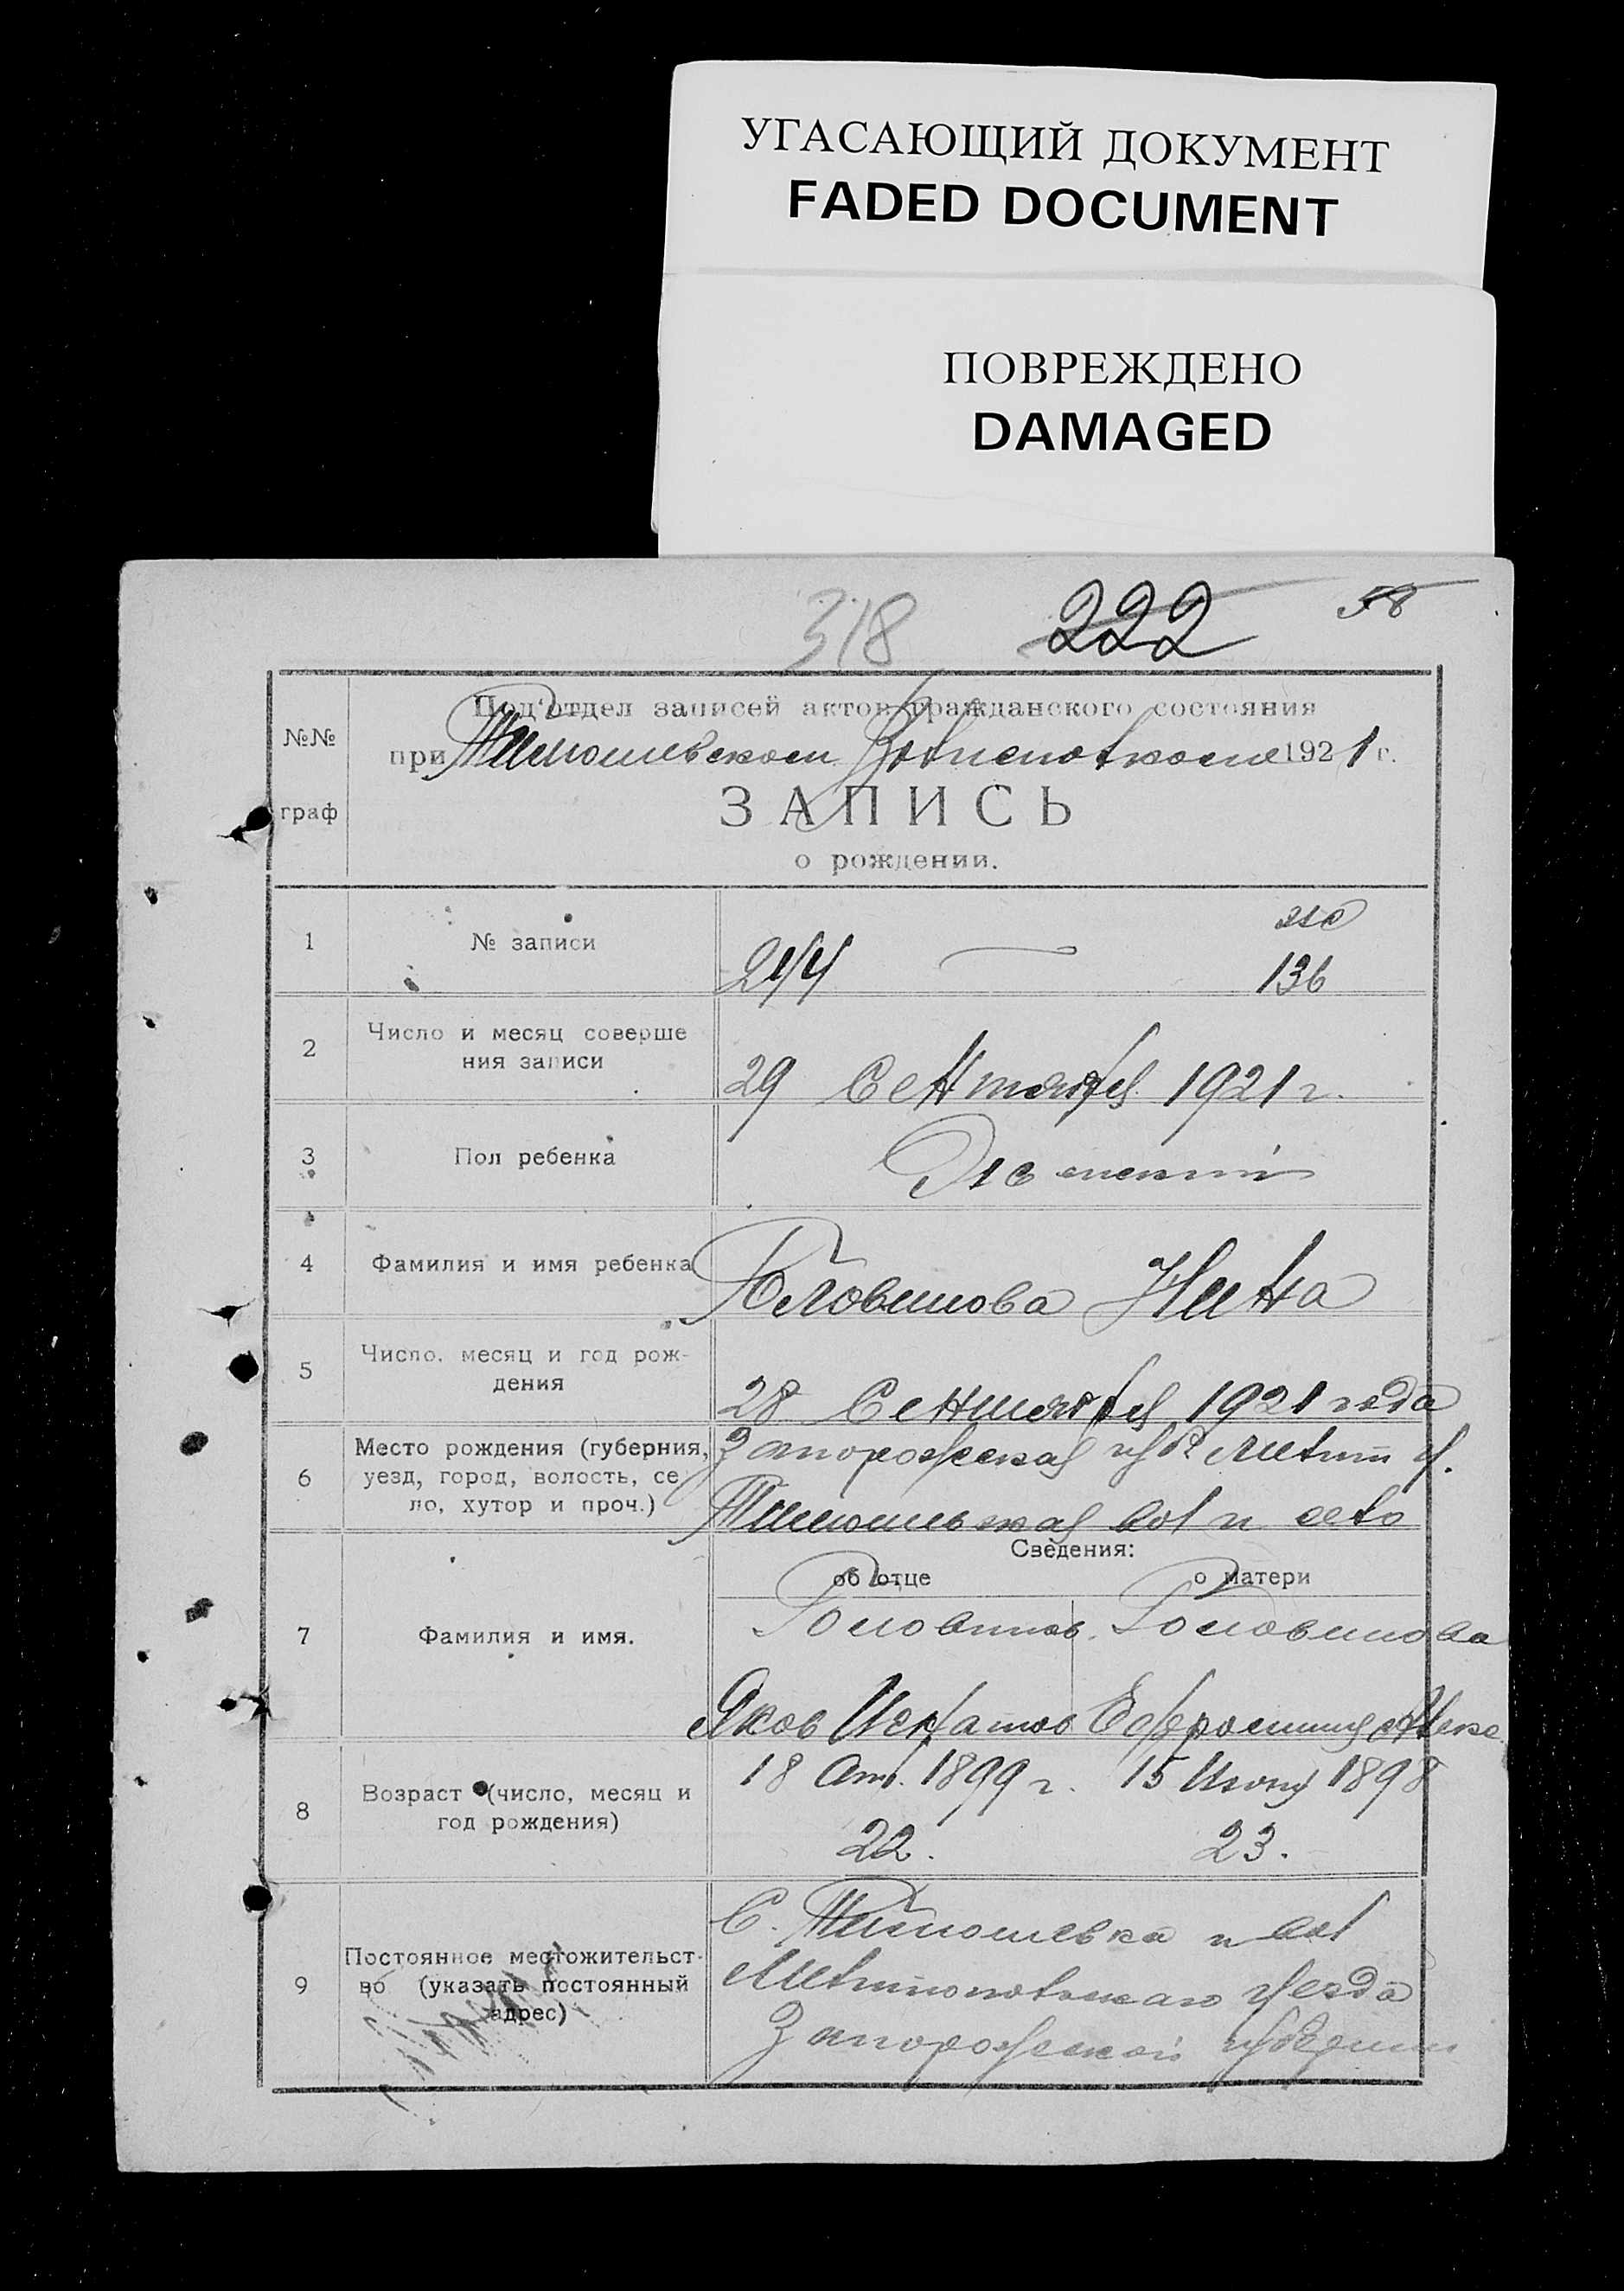 УГАСАЮЩИЙ ДОКУМЕНТ
FADED DOCUMENT
ПОВРЕЖДЕНО
DAMAGED
318 222 58
№№ граф
Под'отдел записей актов гражданского состояния
при Тимошевском 1921 г.
ЗАПИСЬ
о рождении.
1 № записи 244 136
2 Число и месяц соверше
ния записи 29 Сентября 1921 г.
3 Пол ребенка Женский
4 Фамилия и имя ребенка Головинова Нина
5 Число, месяц и год рож-
дения 28 Сентября 1921 года
6 Место рождения (губерния,
уезд, город, волость, се
ло, хутор и проч.)
Запорожская губ. Мелит у.
Тимошевская вол и село
Сведения:
об отце о матери
7 Фамилия и имя.
Головинов Головинова
Яков Ефросиния
8 Возраст (число, месяц и
год рождения)
18 1899 г. 15 1898
22. 23.
9 Постоянное местожительст-
во (указать постоянный
адрес)
С. Тимошевка и вол
Мелитопольскаго уезда
Запорожской губернии